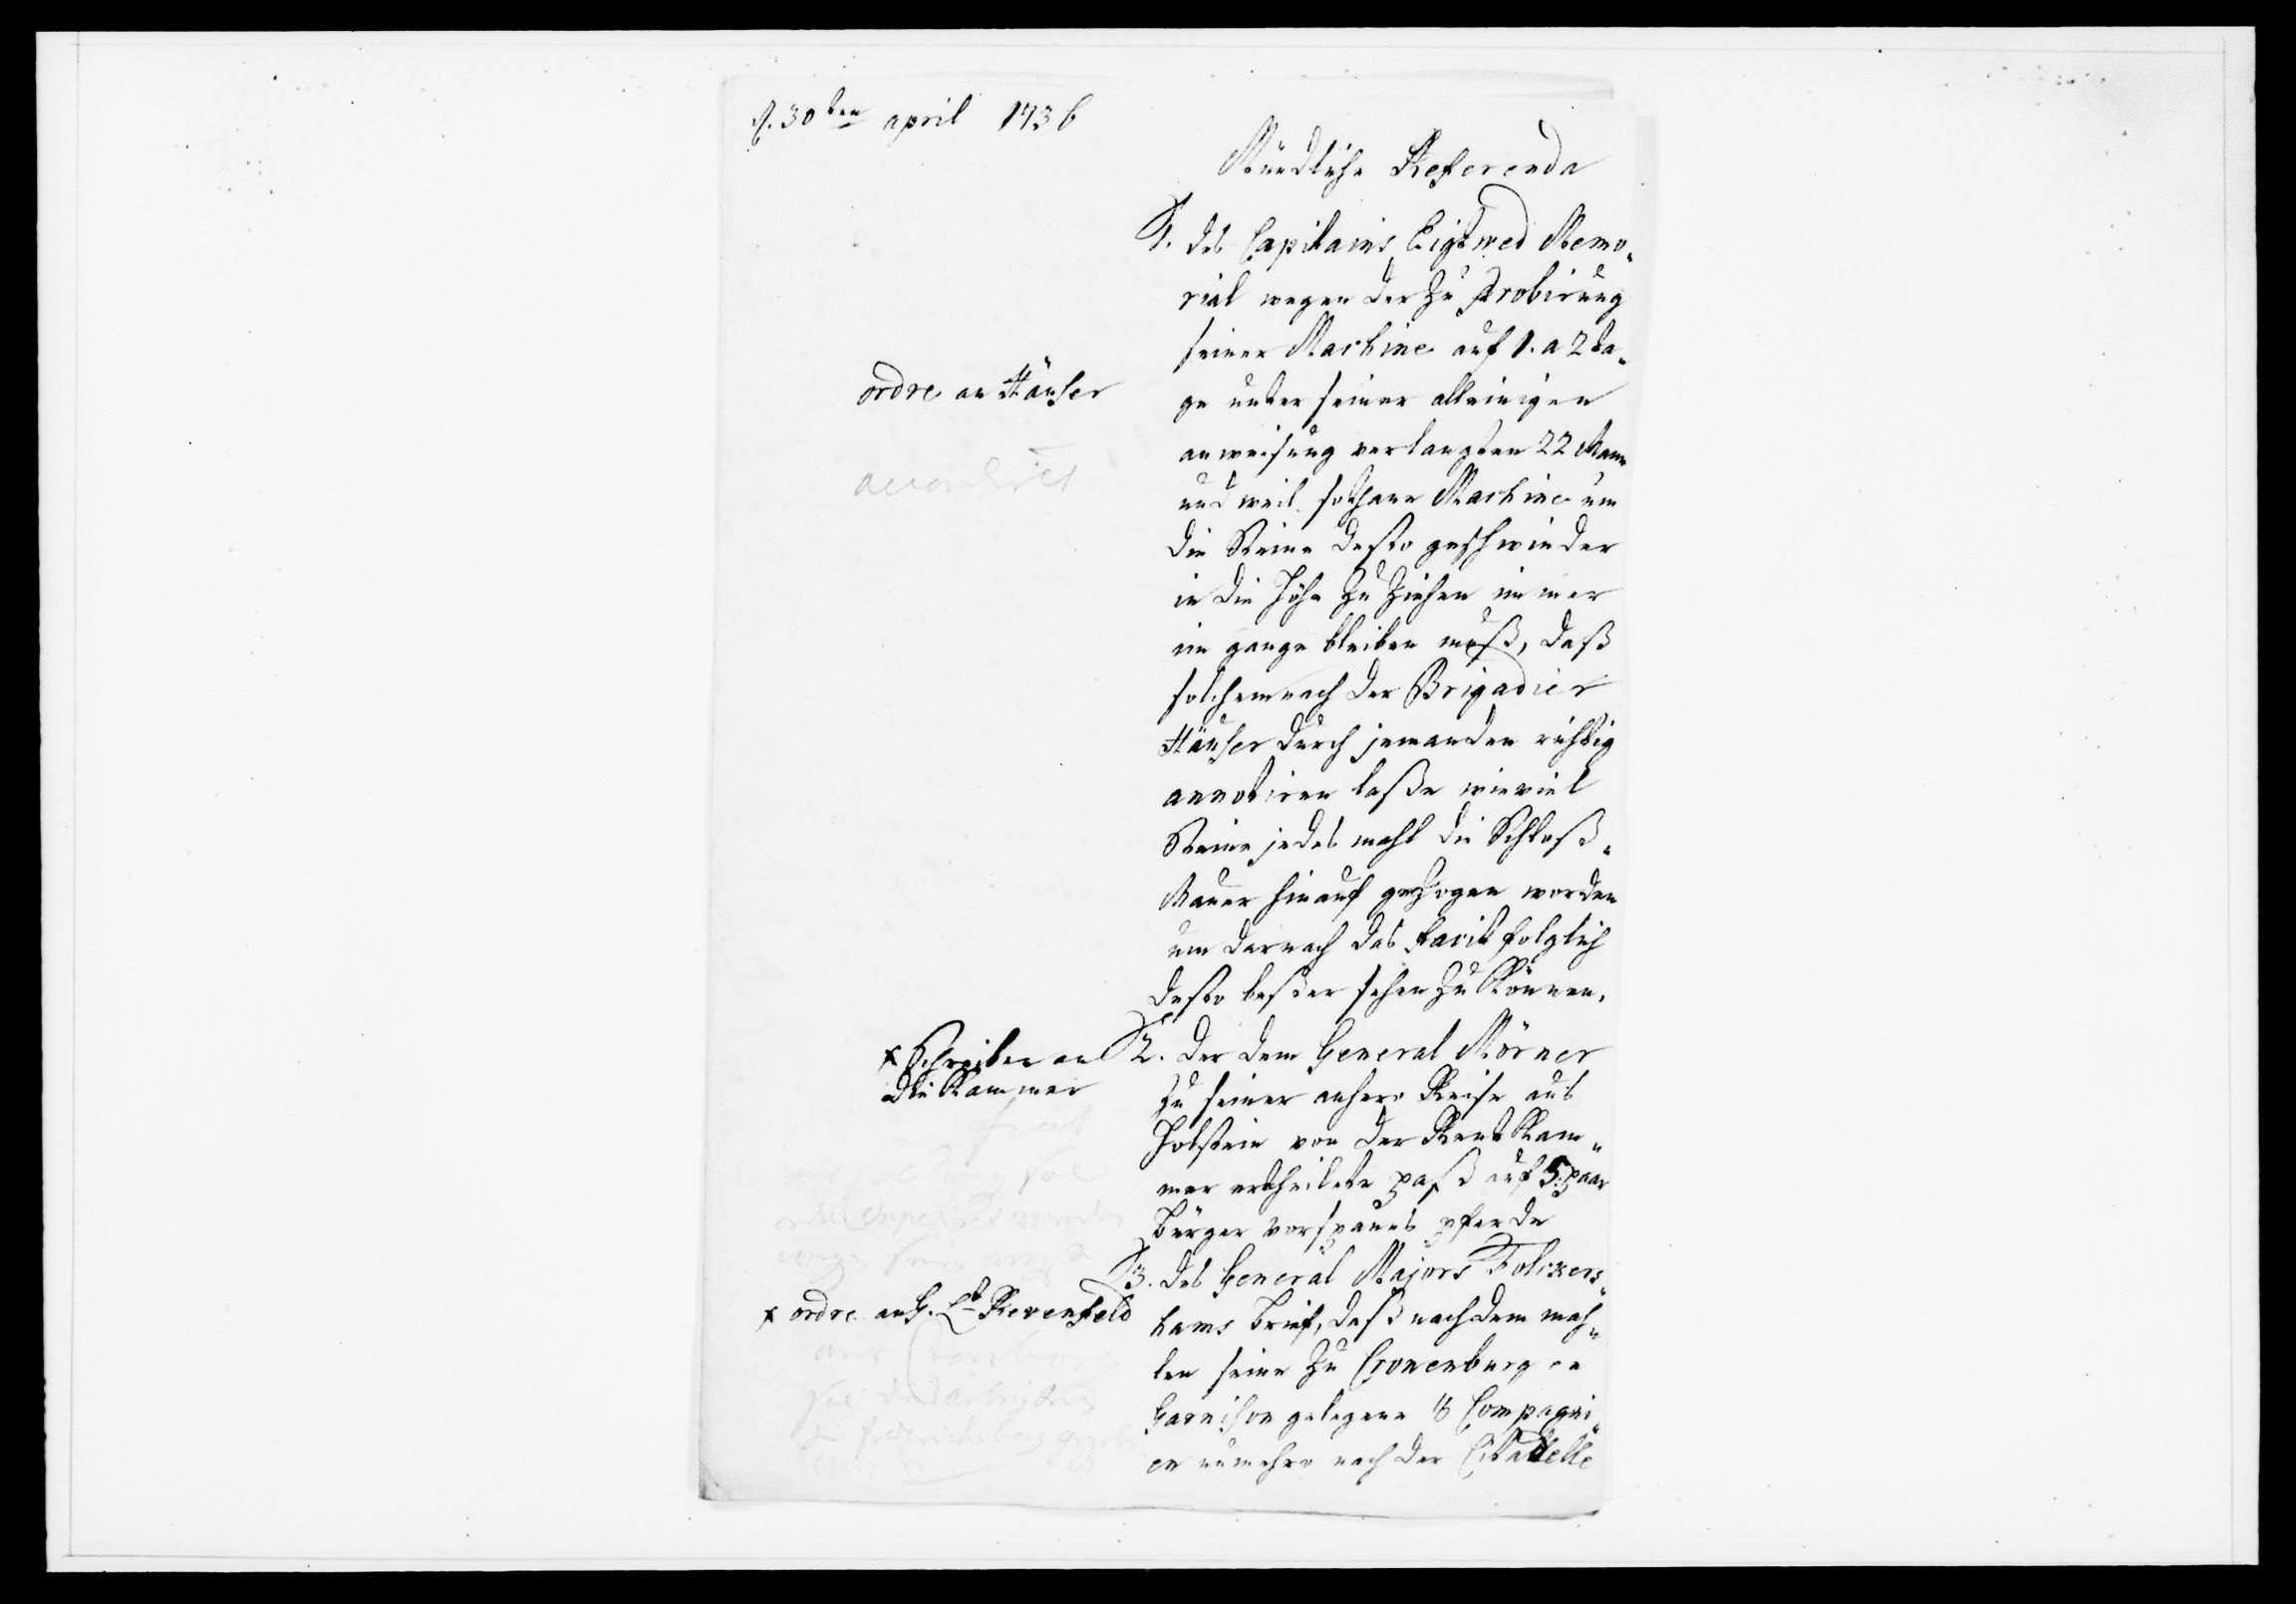 d. 30ten april 1736
Mündliche Referenda
1. des Capitains Eigtwed Memo„
rial wegen der zu Probirung
seiner Machine auf 1. a 2 ta„
ge unter seiner alleinigen
anweisung verlangten 22 Mann
und weil sothane Machine um
die Steine desto geschwinder
in die Höhe zu ziehen immer
im gange bleiben muß, daß
solchemnach der Brigadier
Häusser durch jemanden richtig
annotiren laße wieviel
Steine jedes mahl die Schloß„
Mauer hinauf gezogen worden
um darnach das facit folglich
desto beßer sehen zu können.
ordre an Häusser
accordiret
2. der dem General Mörner
zu seiner anhero Reise aus
Holstein von der Rent Kam„
mer ertheilete paß auf 5. paar
bürger vorspanns pferde
x Schreiben an
die Kammer
3. des General Majors Folckers„
hams brief, daß nachdem mah„
len seine zu Cronenburg in
Garnison gelegene Compagni„
en nunmehro nach der Citadelle
x ordre an G. Lt Revenfeld